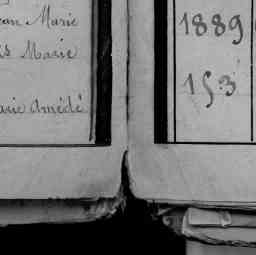 ean Marie
is Marie
arie Amédé
1889
153